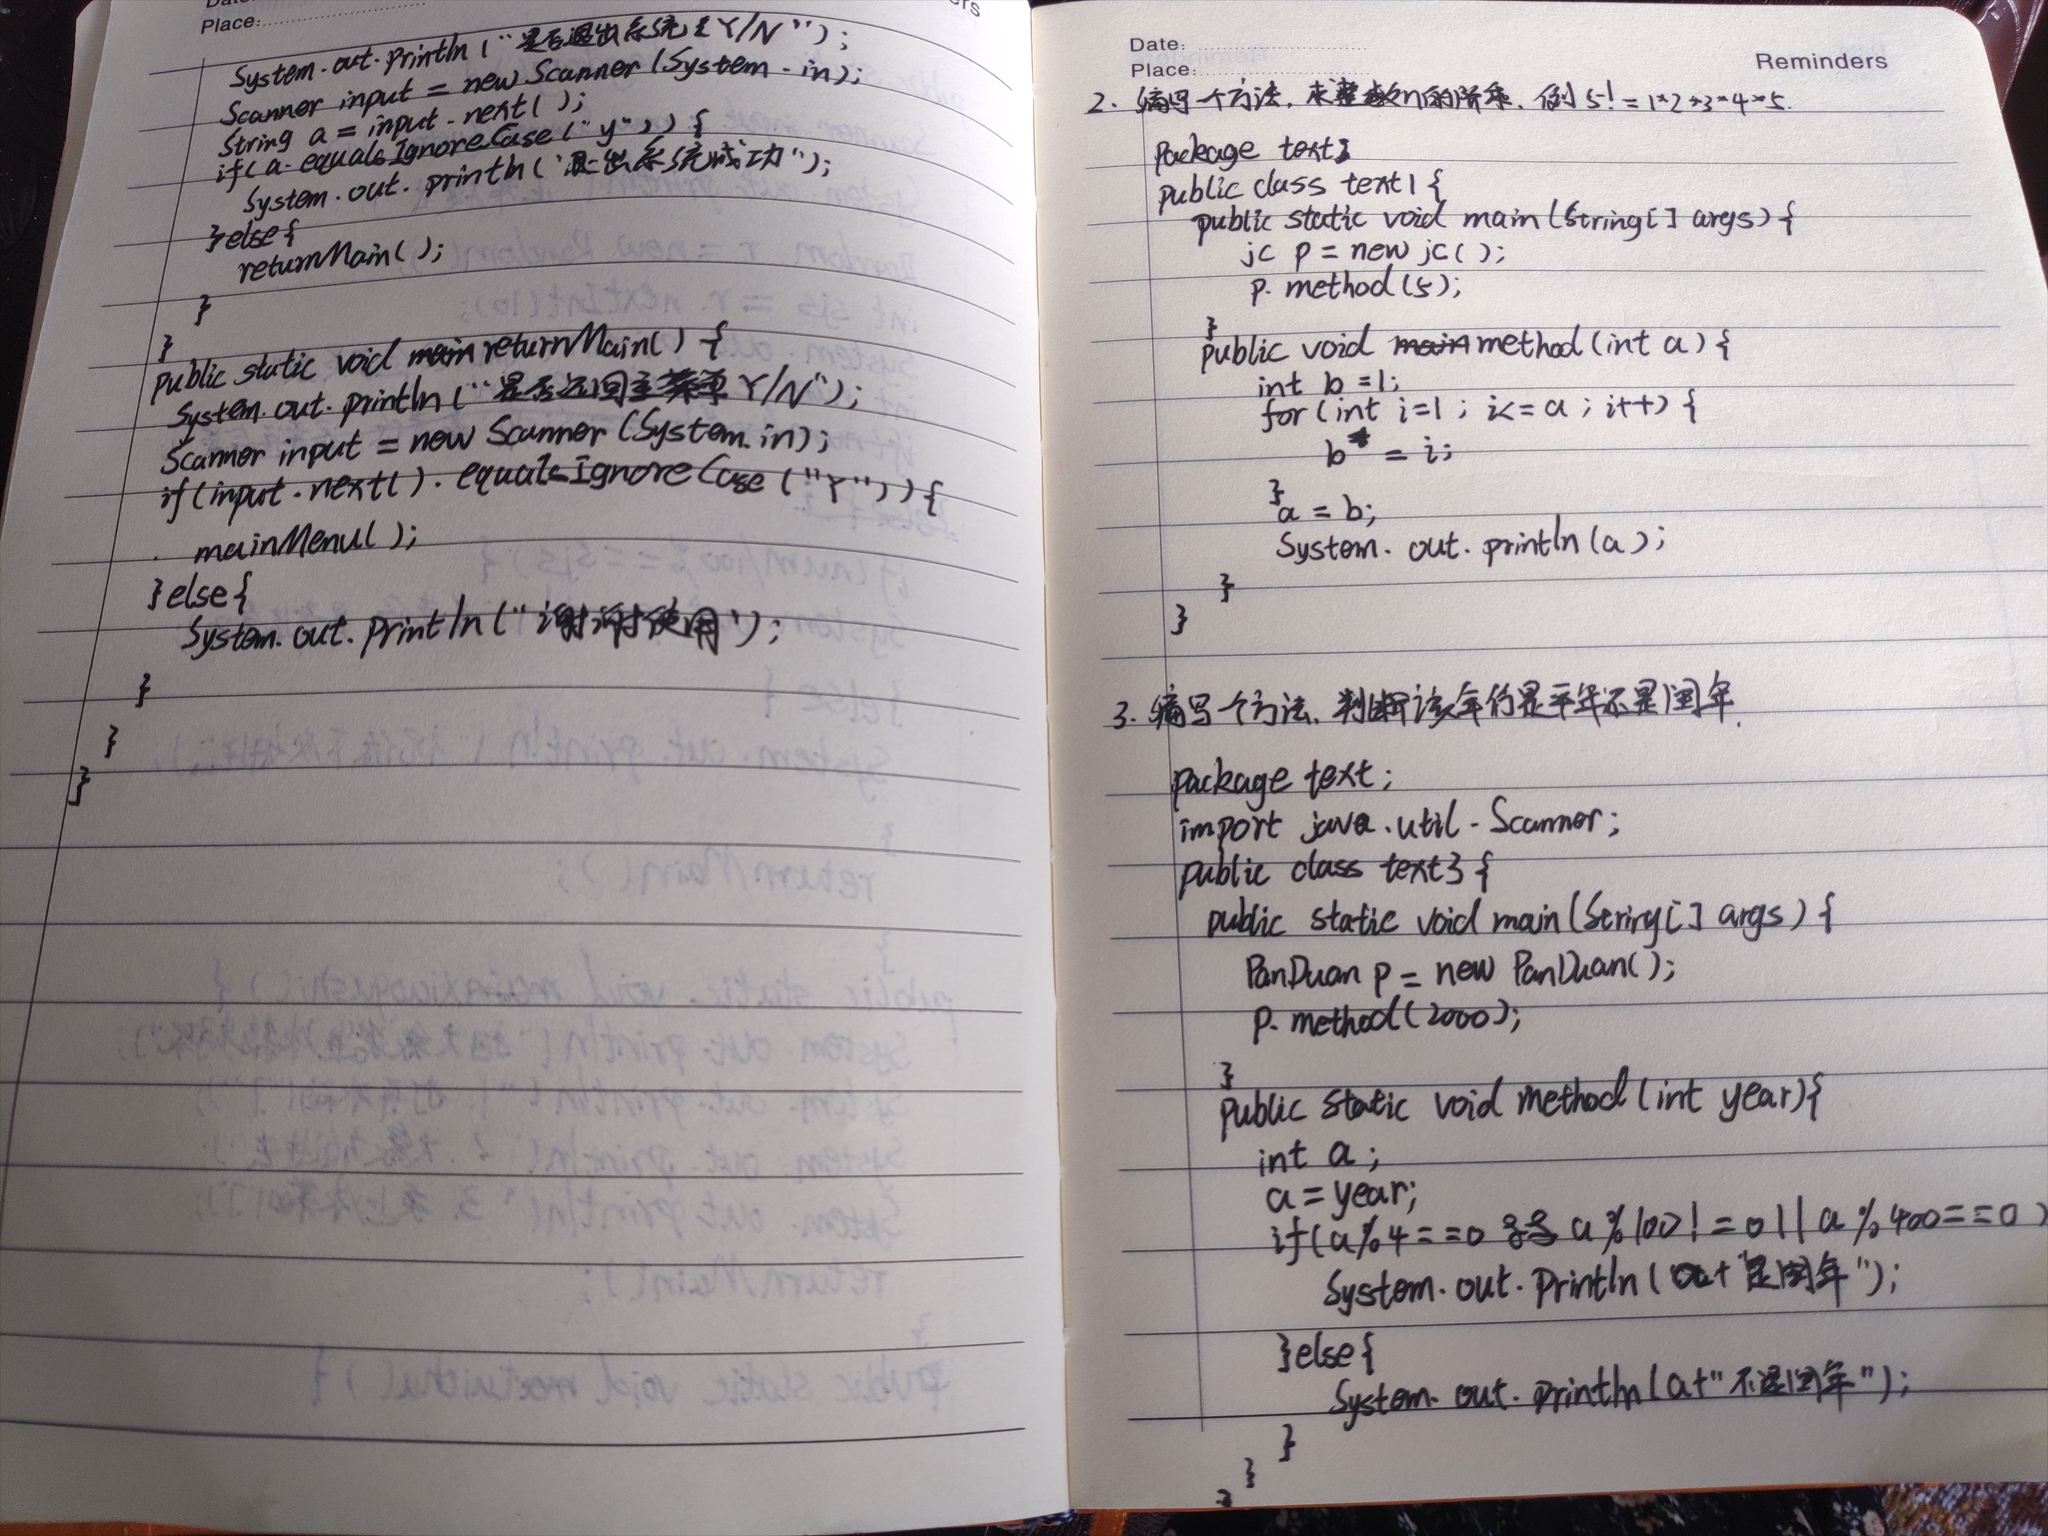 Place:
System.out.println("是否退出系统 Y/N");
Scanner input = new Scanner(System.in);
String a = input.next();
if(a.equalsIgnoreCase("y")){
System.out.println("退出系统成功");
}else{
returnMain();
}
}
public static void returnMain(){
System.out.println("是否返回主菜单 Y/N");
Scanner input = new Scanner(System.in);
if(input.next().equalsIgnoreCase("Y")){
mainMenu();
}else{
System.out.println("谢谢使用");
}
}
}
Date:
Place:
Reminders
2. 编写一个方法, 求整数n的阶乘, 例5!=1*2*3*4*5.
package text;
public class text1{
public static void main(String[] args){
jc p = new jc();
p.method(5);
}
public void method(int a){
int b=1;
for(int i=1; i<=a; i++){
b* = i;
}
a = b;
System.out.println(a);
}
}
3. 编写一个方法, 判断该年份是平年还是闰年.
package text;
import java.util.Scanner;
public class text3{
public static void main(String[] args){
PanDuan p = new PanDuan();
p.method(2000);
}
public static void method(int year){
int a;
a=year;
if(a%4==0 && a%100!=0||a%400==0)
System.out.println(a+"是闰年");
}else{
System.out.println(a+"不是闰年");
}
}
}